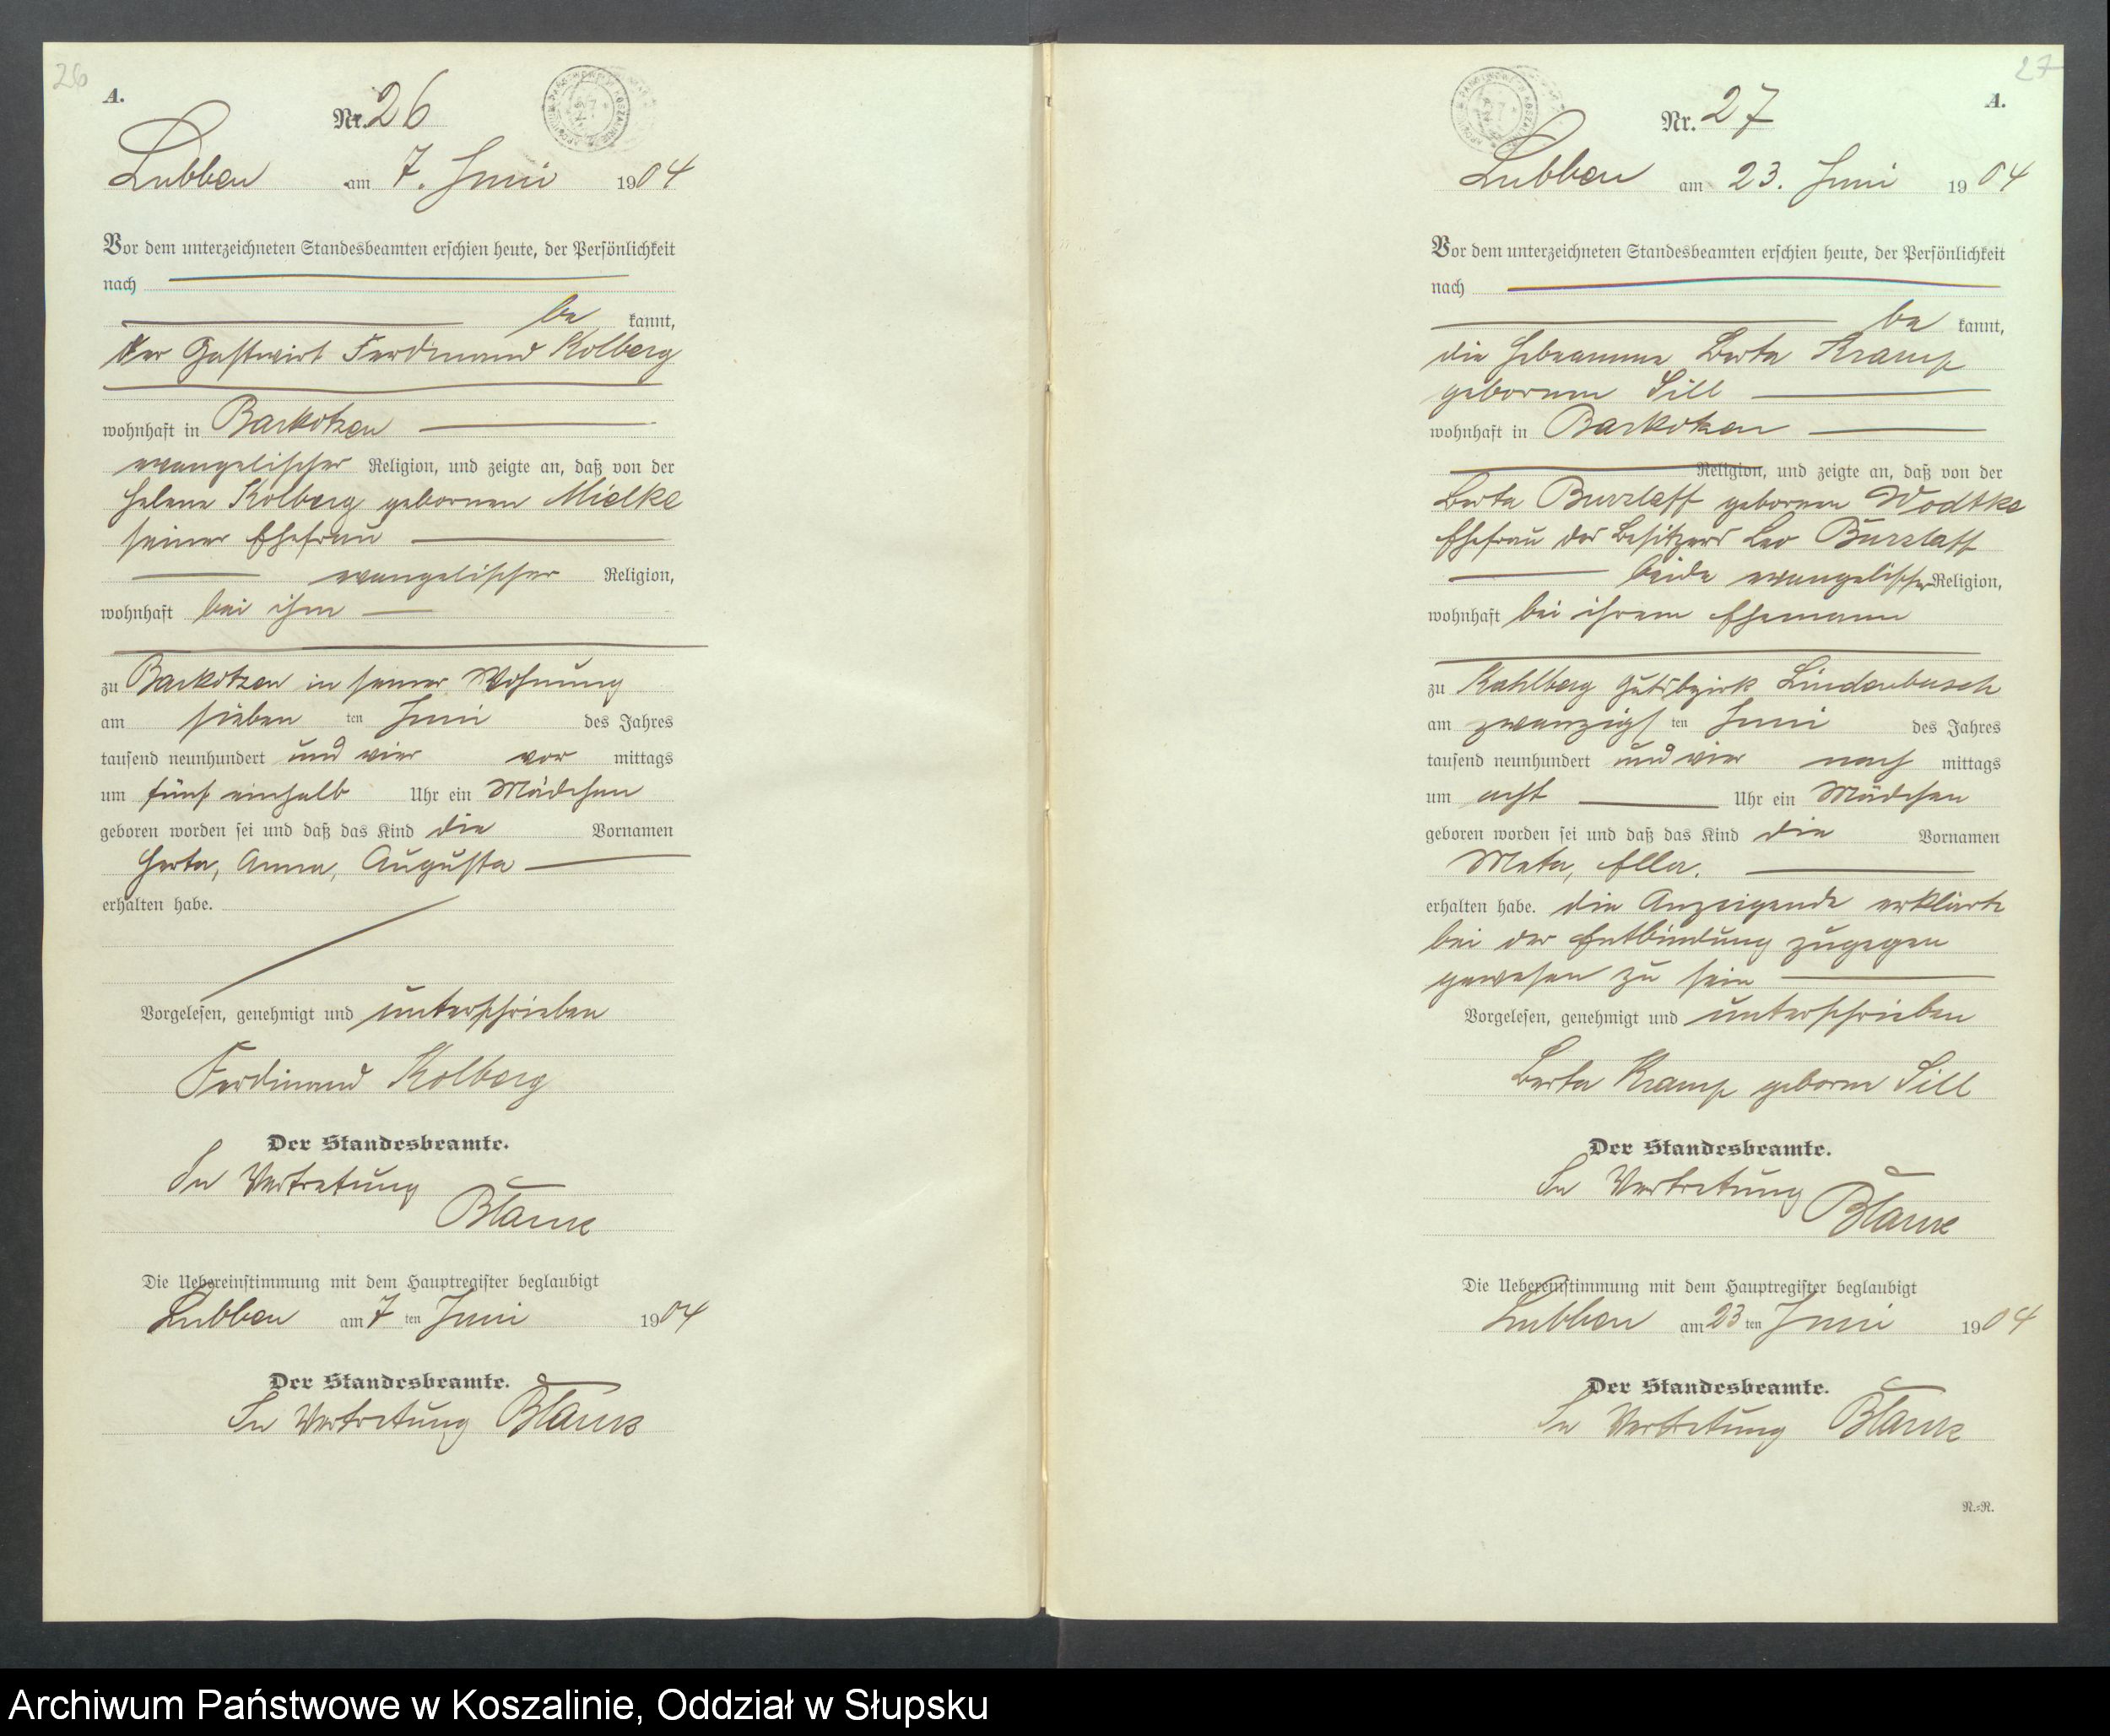 26
A.
Nr. 26
Lubben am 7. Juni 1904
Vor dem unterzeichneten Standesbeamten erschien heute, der Persönlichkeit
nach
be kannt,
der Gastwirt Ferdinand Kolberg
wohnhaft in Barkotzen
evangelischer Religion, und zeigte an, daß von der
Helene Kolberg gebornen Mielke
seiner Ehefrau
evangelischer Religion,
wohnhaft bei ihm
zu Barkotzen in seiner Wohnung
am sieben ten Juni des Jahres
tausend neunhundert und vier vor mittags
um fünf einhalb Uhr ein Mädchen
geboren worden sei und daß das Kind die Vornamen
Herta, Anna, Augusta
erhalten habe.
Vorgelesen, genehmigt und unterschrieben
Ferdinand Kolberg
Der Standesbeamte.
In Vertretung
Die Uebereinstimmung mit dem Hauptregister beglaubigt
Lubben am 7 ten Juni 1904
Der Standesbeamte.
In Vertretung
27
A.
Nr. 27
Lubben am 23. Juni 1904
Vor dem unterzeichneten Standesbeamten erschien heute, der Persönlichkeit
nach
be kannt,
die Hebeamme Berta Kramp
geborene Sill
wohnhaft in Barkotzen
Religion, und zeigte an, daß von der
Berta Burzlaff gebornen Wodtke
Ehefrau des Besitzers Leo Burzlaff
beide evangelischer Religion,
wohnhaft bei ihrem Ehemann
zu Kahlberg Gutsbezirk Lindenbusch
am zwanzigs ten Juni des Jahres
tausend neunhundert und vier nach mittags
um acht Uhr ein Mädchen
geboren worden sei und daß das Kind die Vornamen
Meta, Ella.
erhalten habe. die Anzeigende erklärte
bei der Entbindung zugegen
gewesen zu sein
Vorgelesen, genehmigt und unterschrieben
Berta Kramp geborne Sill
Der Standesbeamte.
In Vertretung
Die Uebereinstimmung mit dem Hauptregister beglaubigt
Lubben am 23 ten Juni 1904
Der Standesbeamte.
In Vertretung
R.=R.
Archiwum Państwowe w Koszalinie, Oddział w Słupsku